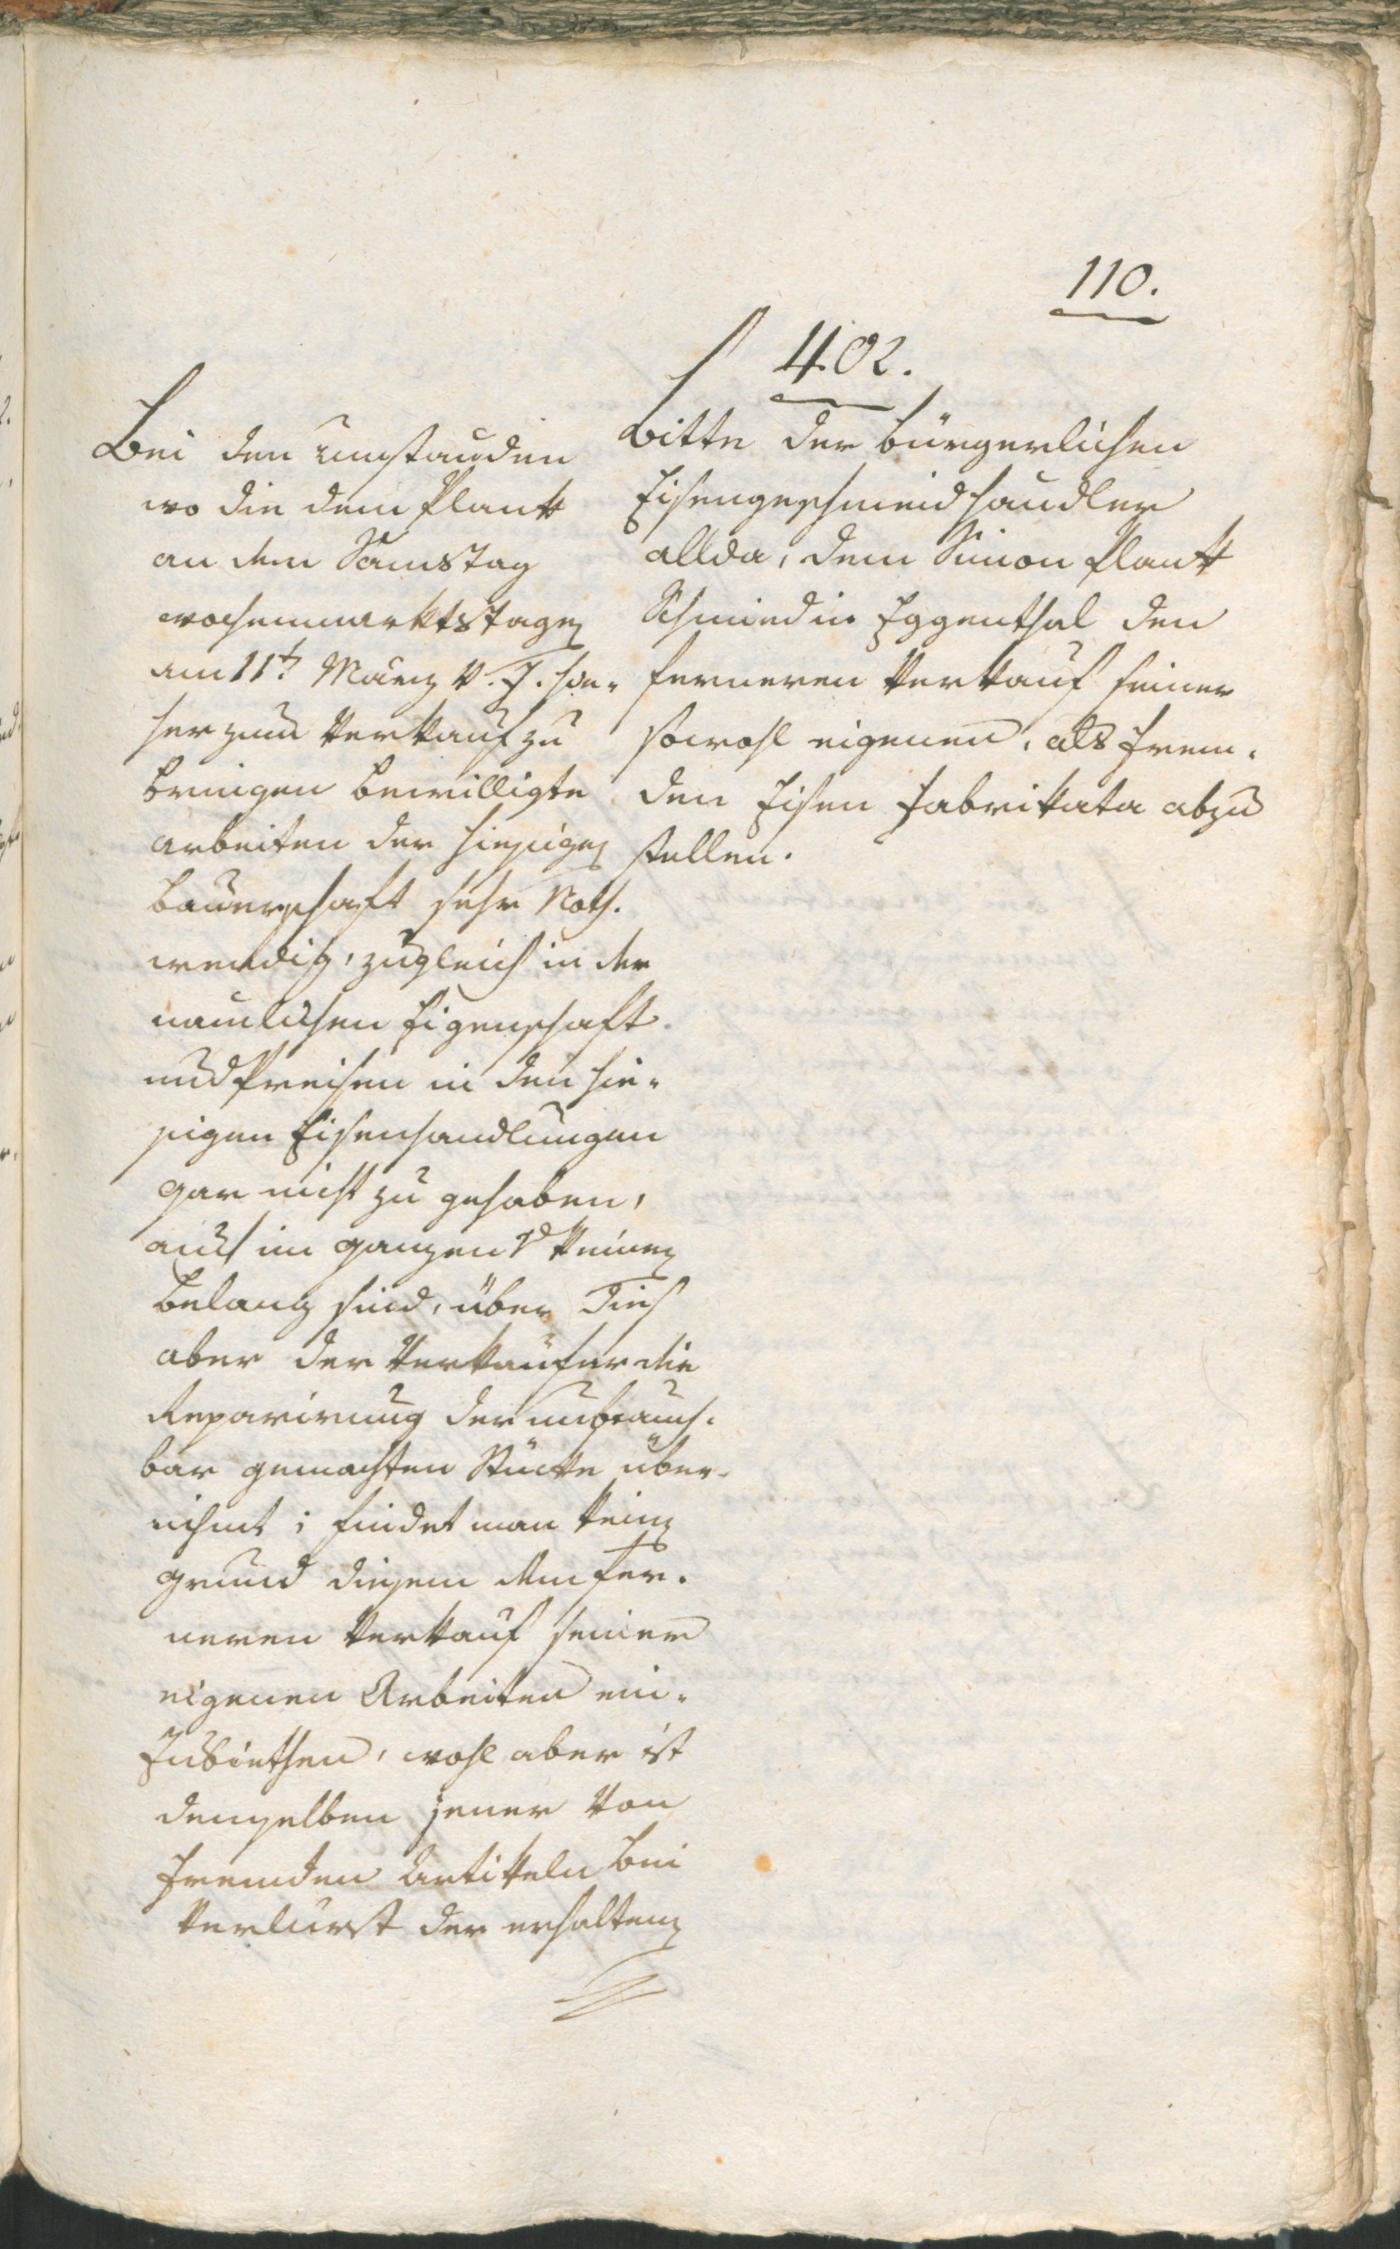 110.
402.
Bitte der bürgerlichen
Eisengeschmeidhandler
allda, dem Simon Plank
Schmied in Eggenthal den
ferneren Verkauf seiner
sowohl eigenen, als frem-
den Eisen fabrikata abzu
stellen.
Bei den Umstanden
wo die dem Plank
an dem Samstag
wochenmarktstagen
am 11t. März v. J. hie-
her zum Verkauf zu
bringen bewilligte
Arbeiten der hiesigen
Bauerschaft sehr Noth-
wendig, zugleich in der
namlichen Eigenschaft
und Preisen in den hie-
sigen Eisenhandlungen
gar nicht zu gehaben,
auch im ganzen keinen
Belang sind, über dies
aber der Verkäufer die
Reparirung der unbrauch-
bar gemachten Stücke über-
nihmt; findet man keinen
grund diesem den fer-
neren Verkauf seiner
eigenen Arbeiten ein-
zubiethen, wohl aber ist
demselben jener von
fremden Artikeln bei
Verlurst der erhaltenen